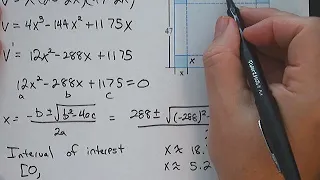 V = 4x³ - 144x² + 1175x
V' = 12x² - 288x + 1175
12x² - 288x + 1175 = 0
a b c
x = -b ± √b² - 4ac / 2a = 288 ± √(-288)² -
Interval of interest
[0,
x ≈ 18.
x ≈ 5.2
47
x
x